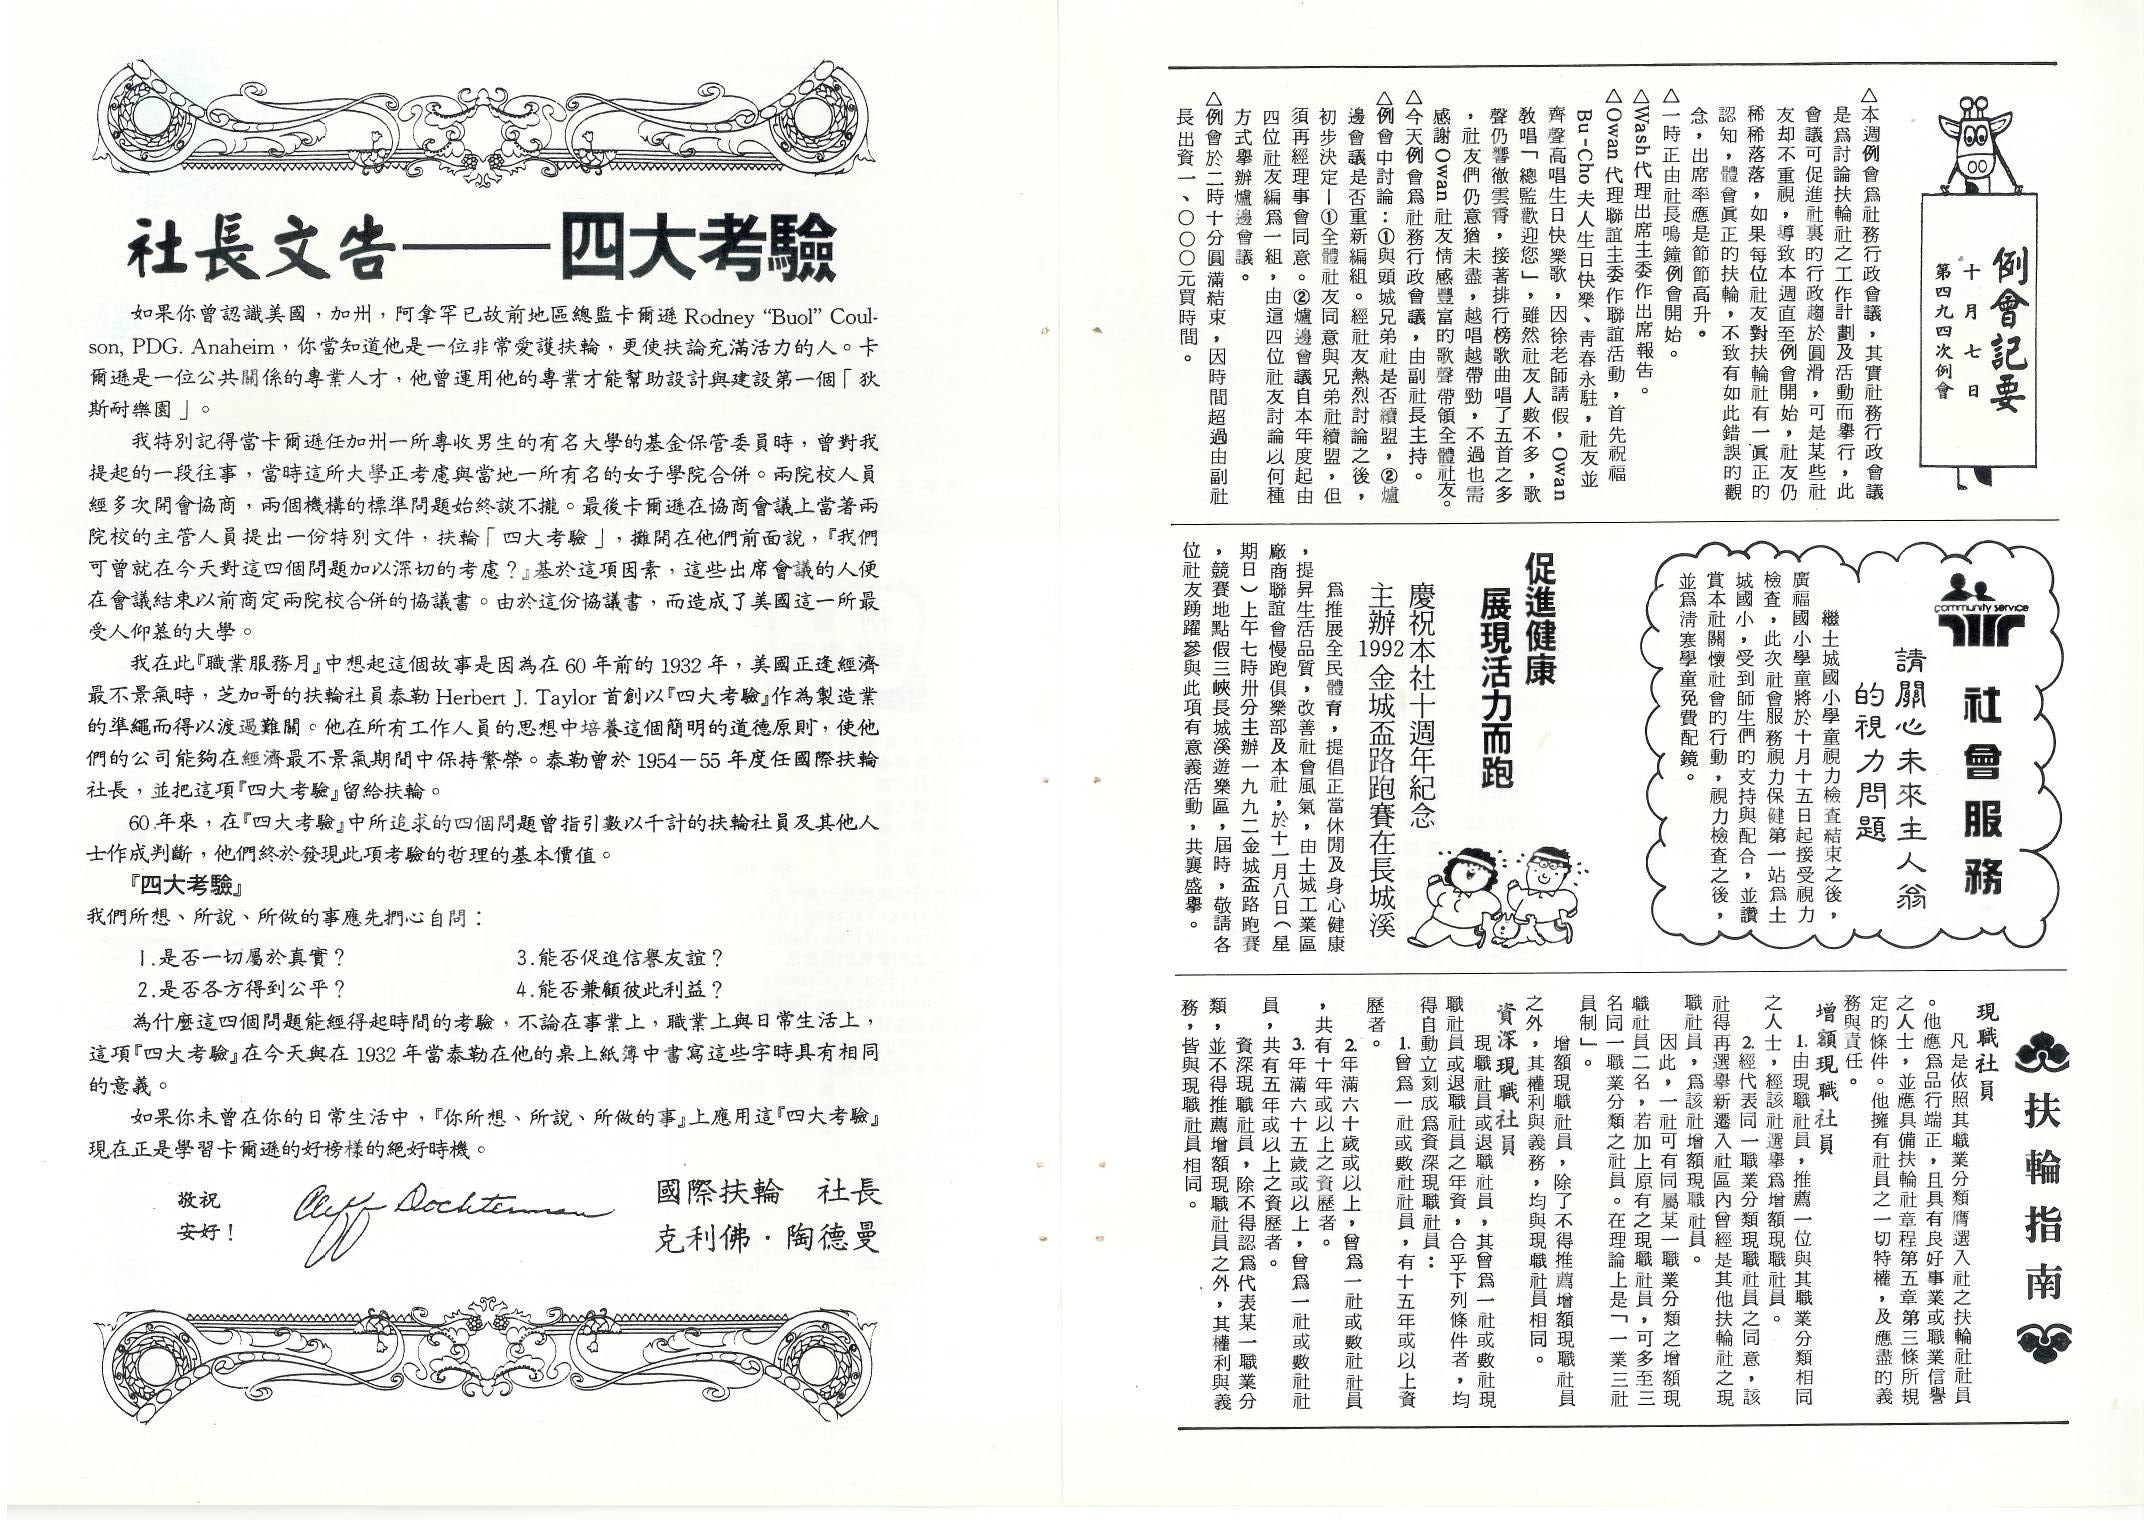 社長文告——四大考驗
如果你曾認識美國，加州，阿拿罕已故前地區總監卡爾遜Rodney “Buol” Coul-
son, PDG. Anaheim，你當知道他是一位非常愛護扶輪，更使扶論充滿活力的人。卡
爾遜是一位公共關係的專業人才，他曾運用他的專業才能幫助設計與建設第一個「狄
斯耐樂園」。
我特別記得當卡爾遜任加州一所專收男生的有名大學的基金保管委員時，曾對我
提起的一段往事，當時這所大學正考慮與當地一所有名的女子學院合併。兩院校人員
經多次開會協商，兩個機構的標準問題始終談不攏。最後卡爾遜在協商會議上當著兩
院校的主管人員提出一份特別文件，扶輪「四大考驗」，攤開在他們前面說，『我們
可曾就在今天對這四個問題加以深切的考慮？』基於這項因素，這些出席會議的人便
在會議結束以前商定兩院校合併的協議書。由於這份協議書，而造成了美國這一所最
受人仰慕的大學。
我在此『職業服務月』中想起這個故事是因為在60年前的1932年，美國正逢經濟
最不景氣時，芝加哥的扶輪社員泰勒Herbert J. Taylor首創以『四大考驗』作為製造業
的準繩而得以渡過難關。他在所有工作人員的思想中培養這個簡明的道德原則，使他
們的公司能夠在經濟最不景氣期間中保持繁榮。泰勒曾於1954－55年度任國際扶輪
社長，並把這項『四大考驗』留給扶輪。
60年來，在『四大考驗』中所追求的四個問題曾指引數以千計的扶輪社員及其他人
士作成判斷，他們終於發現此項考驗的哲理的基本價值。
『四大考驗』
我們所想、所說、所做的事應先捫心自問：
1.是否一切屬於真實？
2.是否各方得到公平？
3.能否促進信譽友誼？
4.能否兼顧彼此利益？
為什麼這四個問題能經得起時間的考驗，不論在事業上，職業上與日常生活上，
這項『四大考驗』在今天與在1932年當泰勒在他的桌上紙簿中書寫這些字時具有相同
的意義。
如果你未曾在你的日常生活中，『你所想、所說、所做的事』上應用這『四大考驗』
現在正是學習卡爾遜的好榜樣的絕好時機。
敬祝
安好！
Cliff Dochterman
國際扶輪　社長
克利佛·陶德曼
例會記要
十月七日
第四九四次例會
△本週例會爲社務行政會議，其實社務行政會議
是爲討論扶輪社之工作計劃及活動而舉行，此
會議可促進社裏的行政趨於圓滑，可是某些社
友却不重視，導致本週直至例會開始，社友仍
稀稀落落，如果每位社友對扶輪社有一眞正的
認知，體會眞正的扶輪，不致有如此錯誤的觀
念，出席率應是節節高升。
△一時正由社長鳴鐘例會開始。
△Wash代理出席主委作出席報告。
△Owan代理聯誼主委作聯誼活動，首先祝福
Bu-Cho夫人生日快樂、青春永駐，社友並
齊聲高唱生日快樂歌，因徐老師請假，Owan
教唱「總監歡迎您」，雖然社友人數不多，歌
聲仍響徹雲霄，接著排行榜歌曲唱了五首之多
，社友們仍意猶未盡，越唱越帶勁，不過也需
感謝Owan社友情感豐富的歌聲帶領全體社友。
△今天例會爲社務行政會議，由副社長主持。
△例會中討論：①與頭城兄弟社是否續盟，②爐
邊會議是否重新編組。經社友熱烈討論之後，
初步決定—①全體社友同意與兄弟社續盟，但
須再經理事會同意。②爐邊會議自本年度起由
四位社友編爲一組，由這四位社友討論以何種
方式舉辦爐邊會議。
△例會於二時十分圓滿結束，因時間超過由副社
長出資一、〇〇〇元買時間。
community service
社會服務
請關心未來主人翁
的視力問題
繼土城國小學童視力檢查結束之後，
廣福國小學童將於十月十五日起接受視力
檢查，此次社會服務視力保健第一站爲土
城國小，受到師生們的支持與配合，並讚
賞本社關懷社會的行動，視力檢查之後，
並爲清寒學童免費配鏡。
促進健康
展現活力而跑
慶祝本社十週年紀念
主辦1992金城盃路跑賽在長城溪
爲推展全民體育，提倡正當休閒及身心健康
，提昇生活品質，改善社會風氣，由土城工業區
廠商聯誼會慢跑俱樂部及本社，於十一月八日（星
期日）上午七時卅分主辦一九九二金城盃路跑賽
，競賽地點假三峽長城溪遊樂區，屆時，敬請各
位社友踴躍參與此項有意義活動，共襄盛擧。
扶輪指南
現職社員
凡是依照其職業分類膺選入社之扶輪社社員
。他應爲品行端正，且具有良好事業或職業信譽
之人士，並應具備扶輪社章程第五章第三條所規
定的條件。他擁有社員之一切特權，及應盡的義
務與責任。
增額現職社員
1.由現職社員，推薦一位與其職業分類相同
之人士，經該社選舉爲增額現職社員。
2.經代表同一職業分類現職社員之同意，該
社得再選擧新遷入社區內曾經是其他扶輪社之現
職社員，爲該社增額現職社員。
因此，一社可有同屬某一職業分類之增額現
職社員二名，若加上原有之現職社員，可多至三
名同一職業分類之社員。在理論上是「一業三社
員制」。
增額現職社員，除了不得推薦增額現職社員
之外，其權利與義務，均與現職社員相同。
資深現職社員
現職社員或退職社員，其曾爲一社或數社現
職社員或退職社員之年資，合乎下列條件者，均
得自動立刻成爲資深現職社員：
1.曾爲一社或數社社員，有十五年或以上資
歷者。
2.年滿六十歲或以上，曾爲一社或數社社員
，共有十年或以上之資歷者。
3.年滿六十五歲或以上，曾爲一社或數社社
員，共有五年或以上之資歷者。
資深現職社員，除不得認爲代表某一職業分
類，並不得推薦增額現職社員之外，其權利與義
務，皆與現職社員相同。